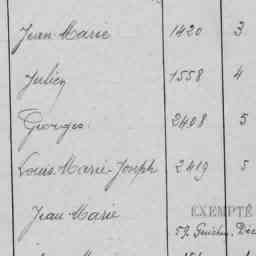 Jean Marie 1420 3
Julien 1558 4
Georges 2408 5
Louis Marie-Joseph 2419 5
Jean Marie EXEMPTÉ
59, Guichen, Déc